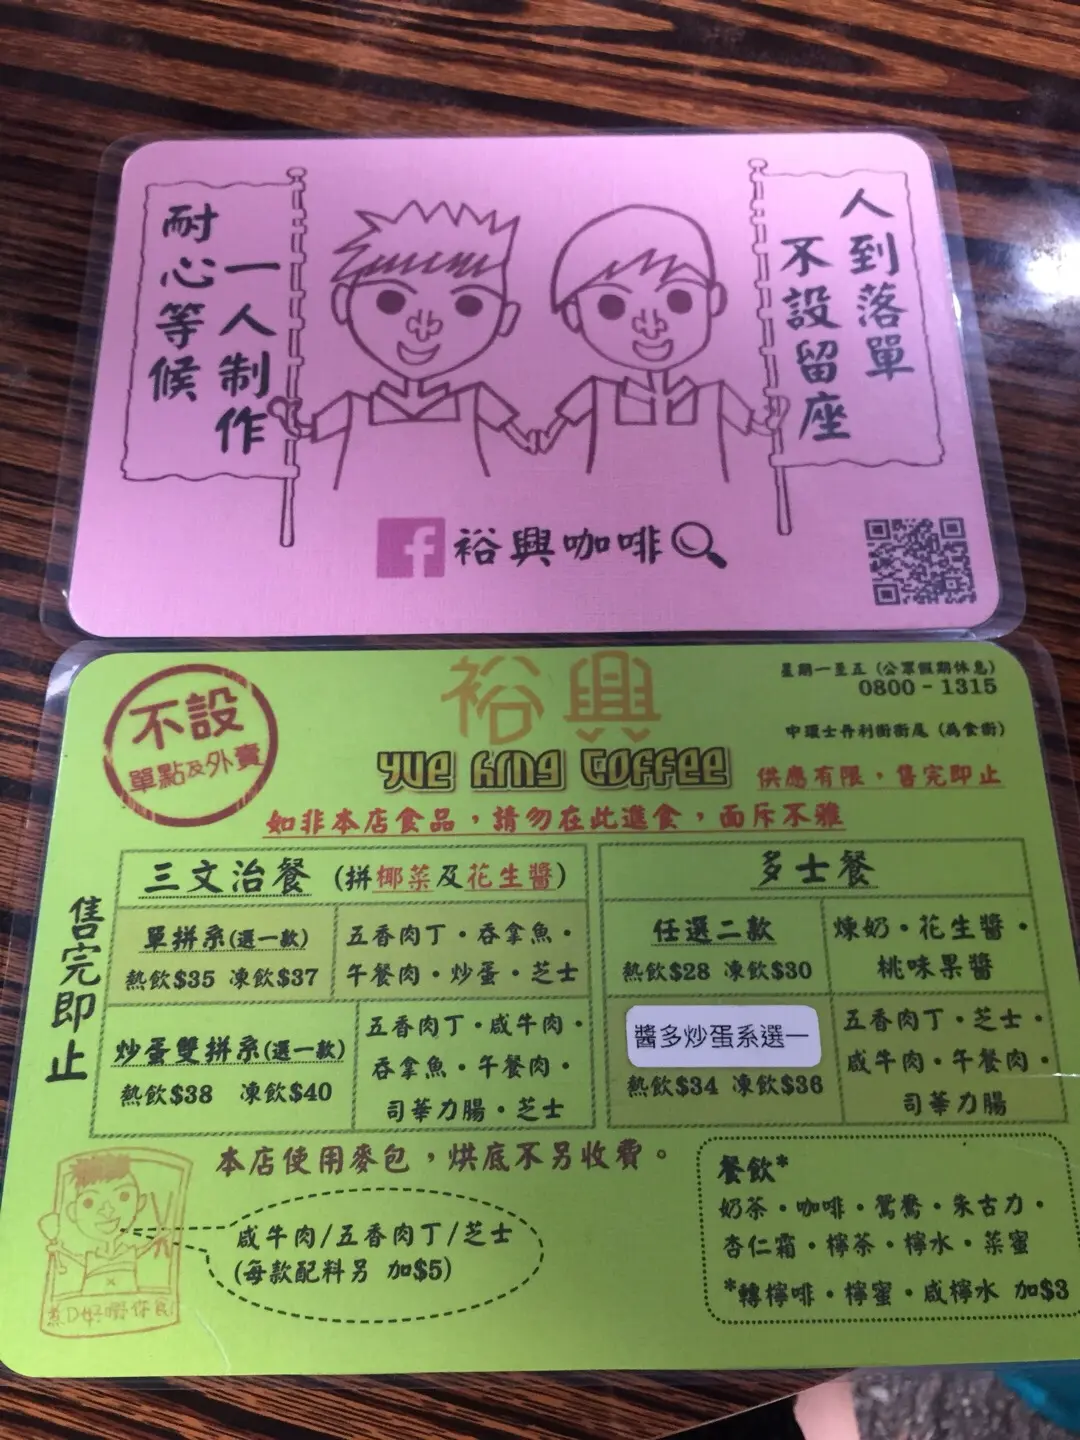 人到落單
不設留座
一人制作
耐心等候
f 裕興咖啡
不設
單點及外賣
裕興
Yue Hing Coffee
星期一至五 (公眾假期休息)
0800 - 1315
中環士丹利街街尾 (為食街)
供應有限，售完即止
如非本店食品，請勿在此進食，面斥不雅
售完即止
三文治餐 (拼椰菜及花生醬)
單拼系(選一款)
熱飲$35 凍飲$37
五香肉丁・吞拿魚・
午餐肉・炒蛋・芝士
炒蛋雙拼系(選一款)
熱飲$38 凍飲$40
五香肉丁・咸牛肉・
吞拿魚・午餐肉・
司華力腸・芝士
多士餐
任選二款
熱飲$28 凍飲$30
煉奶・花生醬・
桃味果醬
醬多炒蛋系選一
熱飲$34 凍飲$36
五香肉丁・芝士・
咸牛肉・午餐肉・
司華力腸
本店使用麥包，烘底不另收費。
咸牛肉/五香肉丁/芝士
(每款配料另 加$5)
餐飲*
奶茶・咖啡・鴛鴦・朱古力・
杏仁霜・檸茶・檸水・菜蜜
*轉檸啡・檸蜜・咸檸水 加$3
煮D好嘢你食